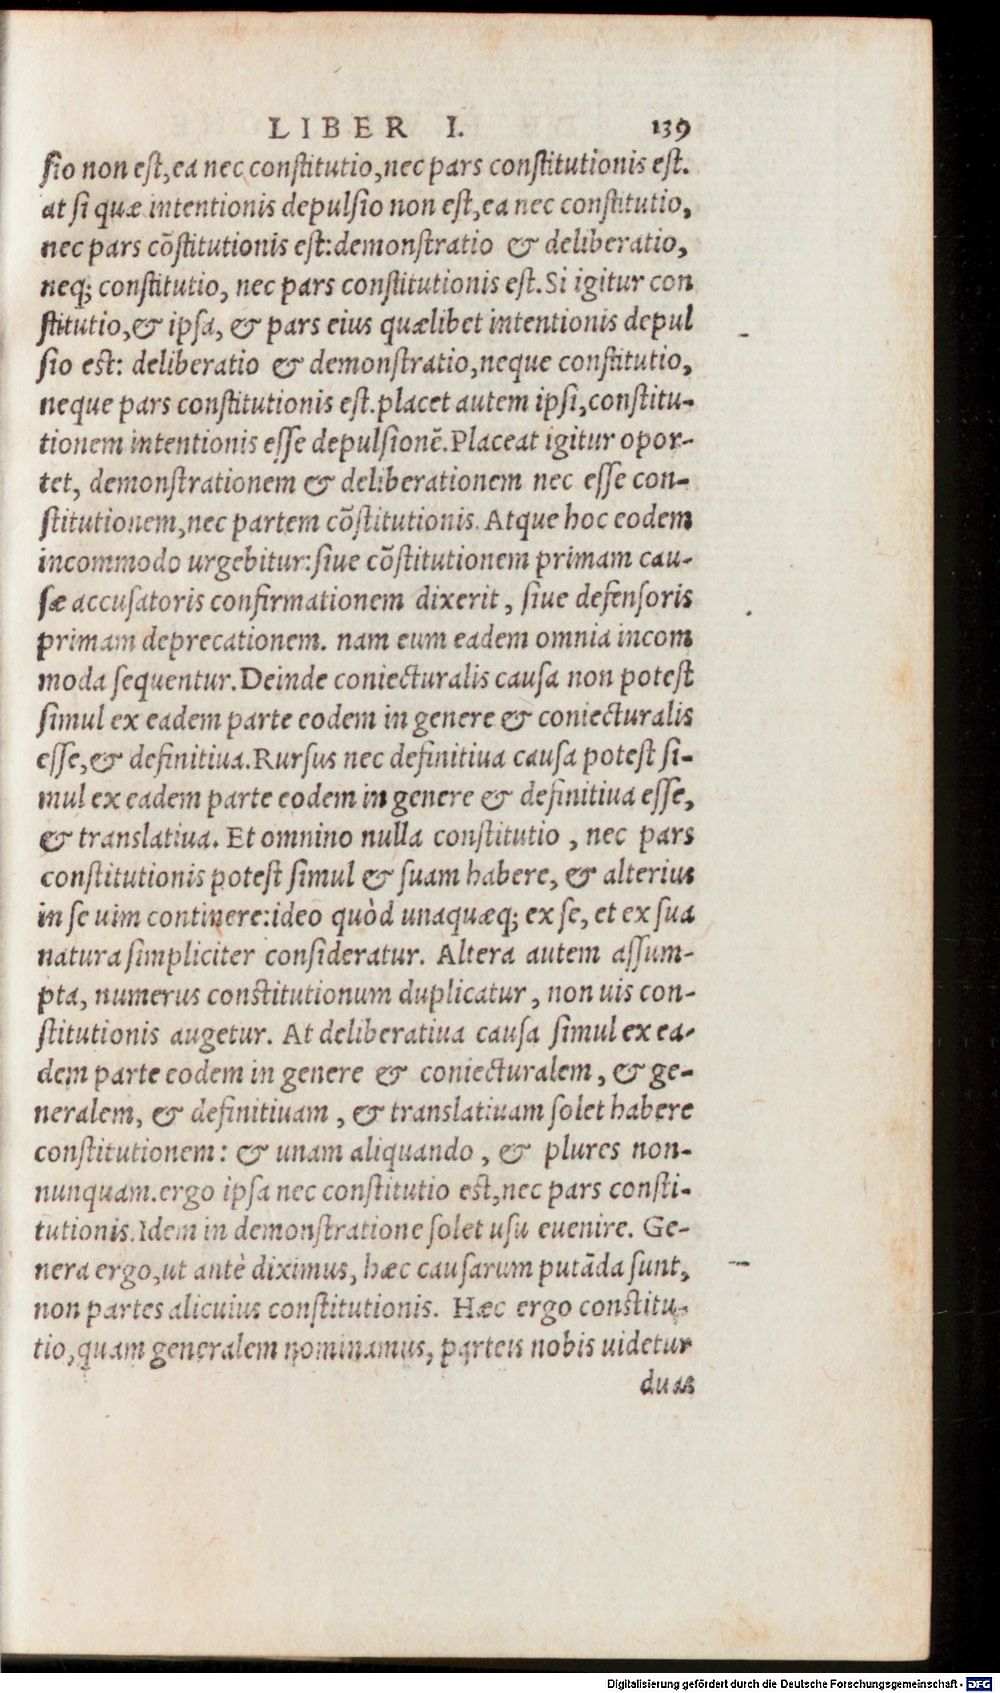 LIBER I. 139
sio non est,ea nec constitutio,nec pars constitutionis est.
at si quæ intentionis depulsio non est,ea nec constitutio,
nec pars cõstitutionis est:demonstratio & deliberatio,
neq; constitutio, nec pars constitutionis est.Si igitur con
stitutio,& ipsa, & pars eius quælibet intentionis depul
sio est: deliberatio & demonstratio,neque constitutio,
neque pars constitutionis est.placet autem ipsi,constitu-
tionem intentionis esse depulsionẽ.Placeat igitur opor-
tet, demonstrationem & deliberationem nec esse con-
stitutionem,nec partem cõstitutionis. Atque hoc eodem
incommodo urgebitur:siue cõstitutionem primam cau-
sæ accusatoris confirmationem dixerit, siue defensoris
primam deprecationem. nam eum eadem omnia incom
moda sequentur.Deinde coniecturalis causa non potest
simul ex eadem parte eodem in genere & coniecturalis
esse,& definitiua.Rursus nec definitiua causa potest si-
mul ex eadem parte eodem in genere & definitiua esse,
& translatiua. Et omnino nulla constitutio, nec pars
constitutionis potest simul & suam habere, & alterius
in se uim continere:ideo quòd unaquæq; ex se, et ex sua
natura simpliciter consideratur. Altera autem assum-
pta, numerus constitutionum duplicatur, non uis con-
stitutionis augetur. At deliberatiua causa simul ex ea-
dem parte eodem in genere & coniecturalem, & ge-
neralem, & definitiuam, & translatiuam solet habere
constitutionem: & unam aliquando, & plures non-
nunquam.ergo ipsa nec constitutio est,nec pars consti-
tutionis.Idem in demonstratione solet usu euenire. Ge-
nera ergo,ut antè diximus, hæc causarum putãda sunt,
non partes alicuius constitutionis. Hæc ergo constitu-
tio,quam generalem nominamus, parteis nobis uidetur
duas
Digitalisierung gefördert durch die Deutsche Forschungsgemeinschaft - DFG